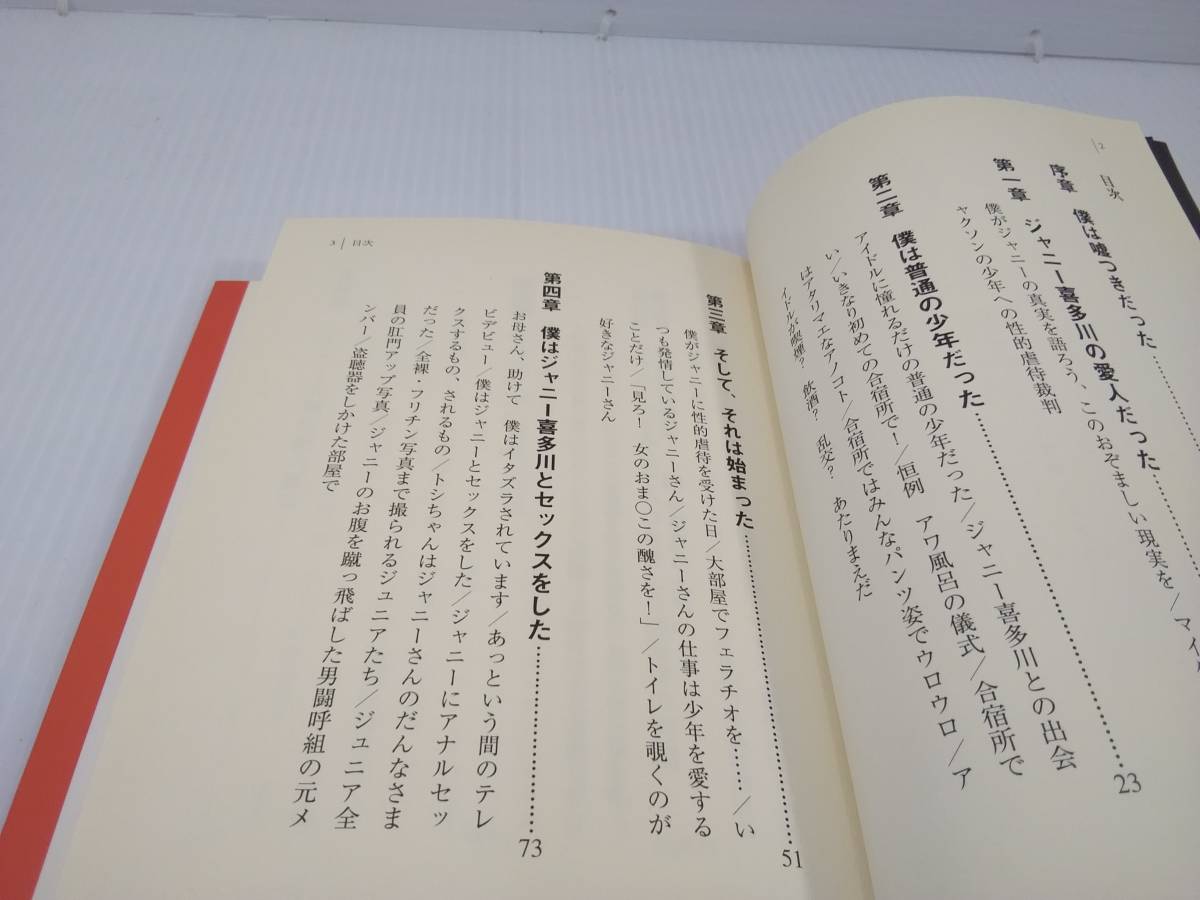 2
目次
序章 僕は嘘つきだった
第一章 ジャニー喜多川の愛人だった
僕がジャニーの真実を語ろう、このおぞましい現実を/マイ
ャクソンの少年への性的虐待裁判
第二章 僕は普通の少年だった 23
アイドルに憧れるだけの普通の少年だった/ジャニー喜多川との出会
い/いきなり初めての合宿所で!/恒例 アワ風呂の儀式/合宿所で
はアタリマエなアノコト/合宿所ではみんなパンツ姿でウロウロ/ア
イドルが喫煙? 飲酒? 乱交? あたりまえだ
3 目次
第三章 そして、それは始まった 51
僕がジャニーに性的虐待を受けた日/大部屋でフェラチオを……/い
つも発情しているジャニーさん/ジャニーさんの仕事は少年を愛する
ことだけ/「見ろ! 女のおま○この醜さを!」/トイレを覗くのが
好きなジャニーさん
第四章 僕はジャニー喜多川とセックスをした 73
お母さん、助けて 僕はイタズラされています/あっという間のテレ
ビデビュー/僕はジャニーとセックスをした/ジャニーにアナルセッ
クスするもの、されるもの/トシちゃんはジャニーさんのだんなさま
だった/全裸・フリチン写真まで撮られるジュニアたち/ジュニア全
員の肛門アップ写真/ジャニーのお腹を蹴っ飛ばした男闘呼組の元メ
ンバー/盗聴器をしかけた部屋で